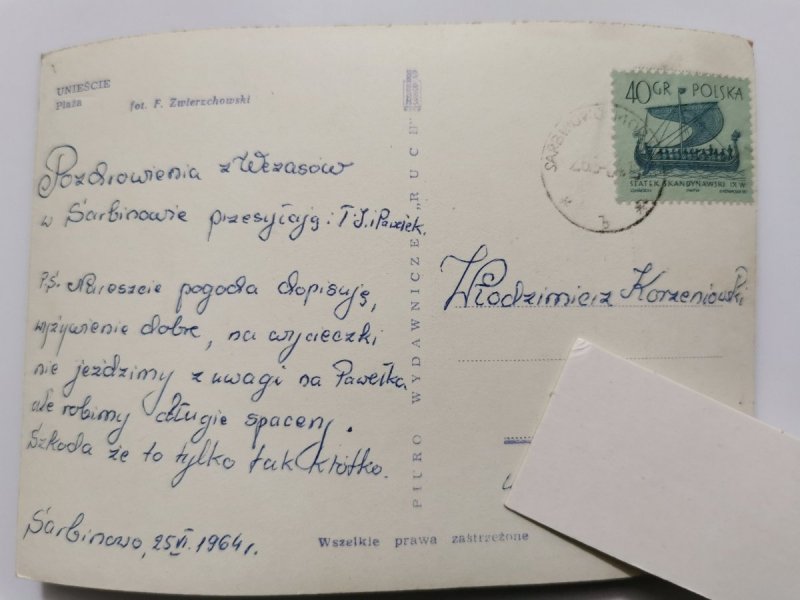 UNIEŚCIE
Plaża
fot. F. Zwierzchowski
Pozdrowienia z Wczasów
w Sarbinowie przesyłają: T.J. i Pawełek.
P.S. Nareszcie pogoda dopisują,
wyżywienie dobre, na wycieczki
nie jeździmy z uwagi na Pawełka,
ale robimy długie spacery.
Szkoda że to tylko tak krótko.
Sarbinowo, 25 VI. 1964 r.
BIURO WYDAWNICZE „RUCH”
Wszelkie prawa zastrzeżone
40 GR POLSKA
STATEK SKANDYNAWSKI IX W.
b
Włodzimierz Korzeniowski